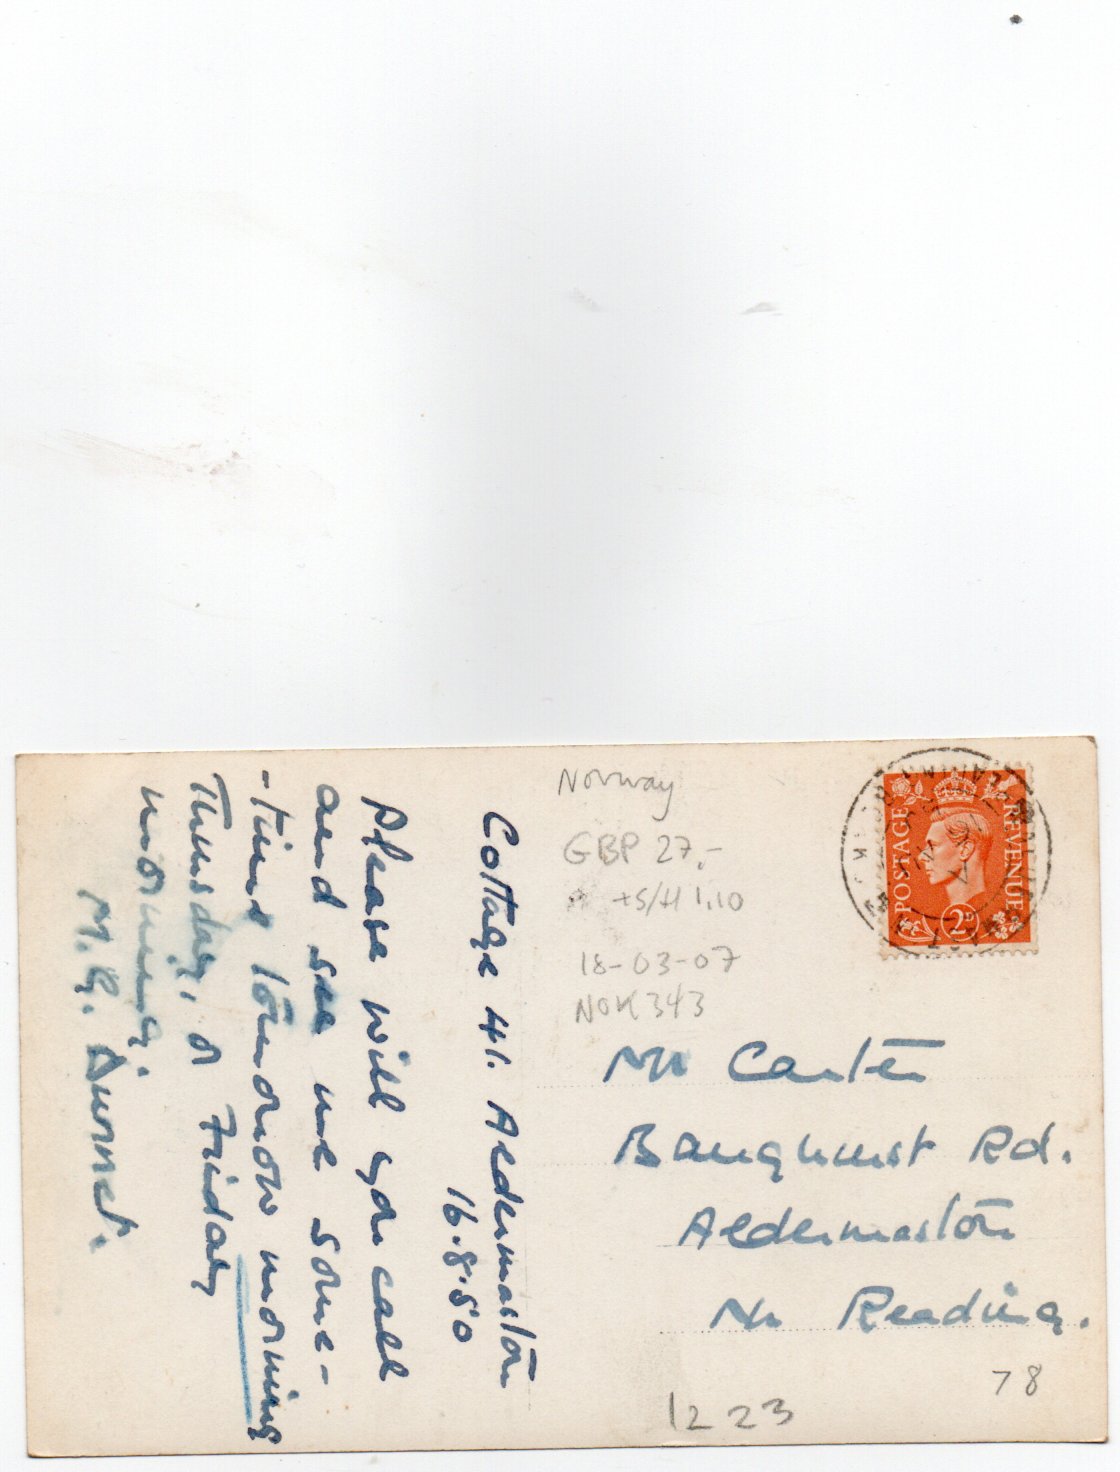 Cottage 41. Aldermaston
16.8.50
Please will you call
and see me some-
-time tomorrow morning
Thursday, or Friday
morning.
M. G.
Norway
GBP 27,-
+S/H 1.10
18-03-07
NOK 343
POSTAGE
REVENUE
2D
Mr Carter
Baughurst Rd.
Aldermaston
Nr Reading.
78
1223